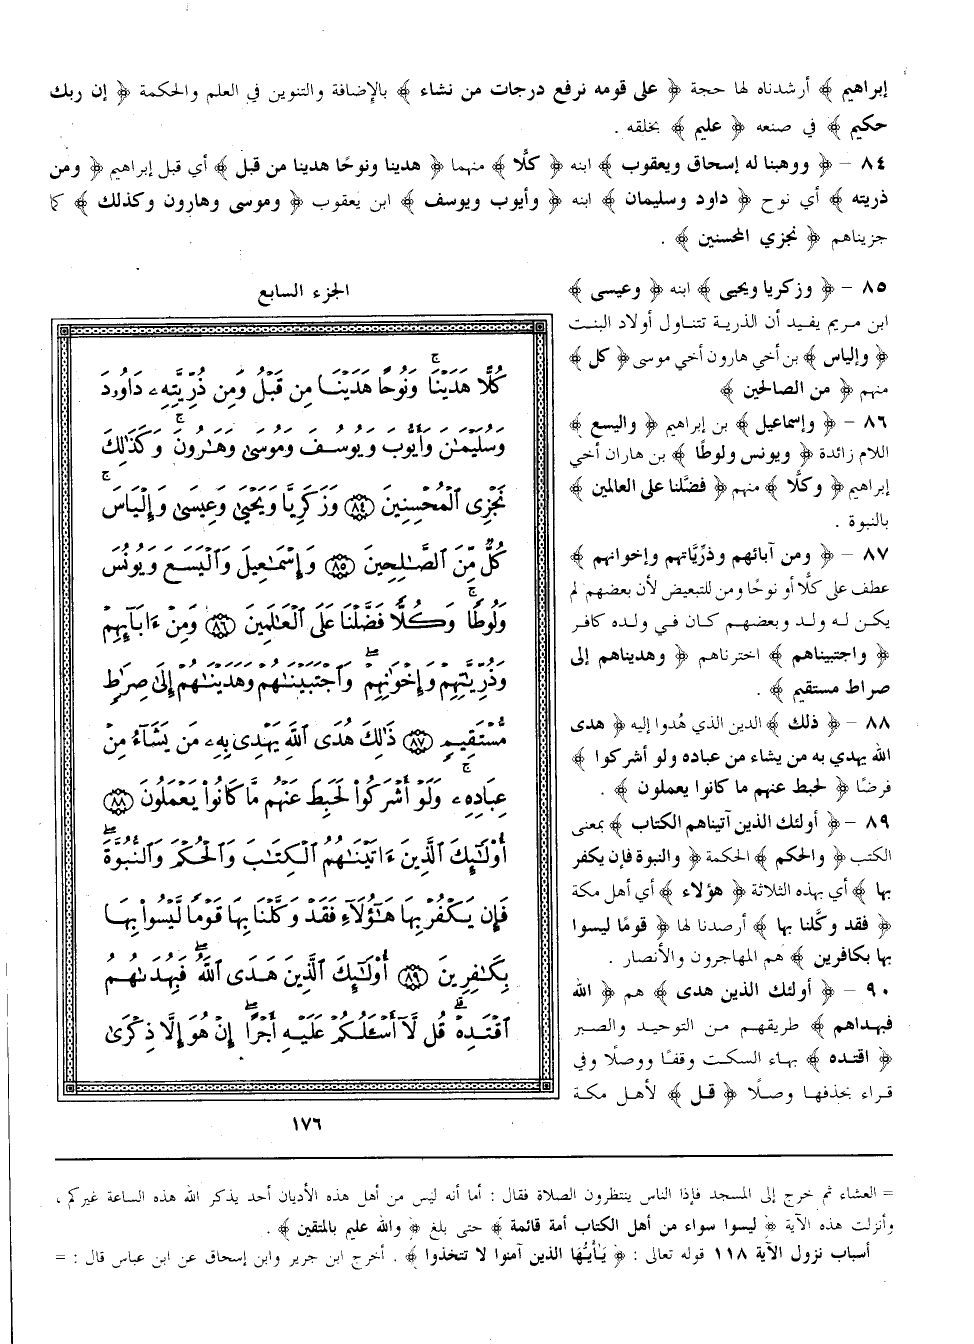 إبراهيم ﴾ أرشدناه لها حجة ﴿ على قومه نرفع درجات من نشاء ﴾ بالإضافة والتنوين في العلم والحكمة ﴿ إن ربك
حكيم ﴾ في صنعه ﴿ عليم ﴾ بخلقه .
٨٤ – ﴿ ووهبنا له إسحاق ويعقوب ﴾ ابنه ﴿ كلًّا ﴾ منهما ﴿ هدينا ونوحًا هدينا من قبل ﴾ أي قبل إبراهيم ﴿ ومن
ذريته ﴾ أي نوح ﴿ داود وسليمان ﴾ ابنه ﴿ وأيوب ويوسف ﴾ ابن يعقوب ﴿ وموسى وهارون وكذلك ﴾ كما
جزيناهم ﴿ نجزي المحسنين ﴾ .
٨٥ – ﴿ وزكريا ويحيى ﴾ ابنه ﴿ وعيسى ﴾
ابن مريم يفيد أن الذرية تتناول أولاد البنت
﴿ وإلياس ﴾ بن أخي هارون أخي موسى ﴿ كل ﴾
منهم ﴿ من الصالحين ﴾
٨٦ – ﴿ وإسماعيل ﴾ بن إبراهيم ﴿ واليسع ﴾
اللام زائدة ﴿ ويونس ولوطًا ﴾ بن هاران أخي
إبراهيم ﴿ وكلًّا ﴾ منهم ﴿ فضَّلنا على العالمين ﴾
بالنبوة .
٨٧ – ﴿ ومن آبائهم وذرِّيَّاتهم وإخوانهم ﴾
عطف على كلًّا أو نوحًا ومن للتبعيض لأن بعضهم لم
يكن له ولد وبعضهم كان في ولده كافر
﴿ واجتبيناهم ﴾ اخترناهم ﴿ وهديناهم إلى
صراط مستقيم ﴾ .
٨٨ – ﴿ ذلك ﴾ الدين الذي هُدوا إليه ﴿ هدى
الله يهدي به من يشاء من عباده ولو أشركوا ﴾
فرضًا ﴿ لحبط عنهم ما كانوا يعملون ﴾ .
٨٩ – ﴿ أولئك الذين آتيناهم الكتاب ﴾ بمعنى
الكتب ﴿ والحكم ﴾ الحكمة ﴿ والنبوة فإن يكفر
بها ﴾ أي بهذه الثلاثة ﴿ هؤلاء ﴾ أي أهل مكة
﴿ فقد وكَّلنا بها ﴾ أرصدنا لها ﴿ قومًا ليسوا
بها بكافرين ﴾ هم المهاجرون والأنصار .
٩٠ – ﴿ أولئك الذين هدى ﴾ هم ﴿ الله
فبهداهم ﴾ طريقهم من التوحيد والصبر
﴿ اقتده ﴾ بهاء السكت وقفًا ووصلًا وفي
قراءة بحذفها وصلًا ﴿ قل ﴾ لأهل مكة
الجزء السابع
كُلًّا هَدَيْنَاۚ وَنُوحًا هَدَيْنَا مِن قَبْلُۖ وَمِن ذُرِّيَّتِهِۦ دَاوُۥدَ
وَسُلَيْمَٰنَ وَأَيُّوبَ وَيُوسُفَ وَمُوسَىٰ وَهَٰرُونَۚ وَكَذَٰلِكَ
نَجْزِى الْمُحْسِنِينَ ٨٤ وَزَكَرِيَّا وَيَحْيَىٰ وَعِيسَىٰ وَإِلْيَاسَۚ
كُلٌّ مِّنَ الصَّٰلِحِينَ ٨٥ وَإِسْمَٰعِيلَ وَالْيَسَعَ وَيُونُسَ
وَلُوطًاۚ وَكُلًّا فَضَّلْنَا عَلَى الْعَٰلَمِينَ ٨٦ وَمِنْ ءَابَآئِهِمْ
وَذُرِّيَّٰتِهِمْ وَإِخْوَٰنِهِمْۖ وَاجْتَبَيْنَٰهُمْ وَهَدَيْنَٰهُمْ إِلَىٰ صِرَٰطٍ
مُّسْتَقِيمٍ ٨٧ ذَٰلِكَ هُدَى اللَّهِ يَهْدِى بِهِۦ مَن يَشَآءُ مِنْ
عِبَادِهِۦۚ وَلَوْ أَشْرَكُوا۟ لَحَبِطَ عَنْهُم مَّا كَانُوا۟ يَعْمَلُونَ ٨٨
أُو۟لَٰٓئِكَ الَّذِينَ ءَاتَيْنَٰهُمُ الْكِتَٰبَ وَالْحُكْمَ وَالنُّبُوَّةَۚ
فَإِن يَكْفُرْ بِهَا هَٰٓؤُلَآءِ فَقَدْ وَكَّلْنَا بِهَا قَوْمًا لَّيْسُوا۟ بِهَا
بِكَٰفِرِينَ ٨٩ أُو۟لَٰٓئِكَ الَّذِينَ هَدَى اللَّهُۖ فَبِهُدَىٰهُمُ
اقْتَدِهْۗ قُل لَّآ أَسْـَٔلُكُمْ عَلَيْهِ أَجْرًاۖ إِنْ هُوَ إِلَّا ذِكْرَىٰ
١٧٦
= العشاء ثم خرج إلى المسجد فإذا الناس ينتظرون الصلاة فقال : أما أنه ليس من أهل هذه الأديان أحد يذكر الله هذه الساعة غيركم ،
وأنزلت هذه الآية ﴿ ليسوا سواء من أهل الكتاب أمة قائمة ﴾ حتى بلغ ﴿ والله عليم بالمتقين ﴾ .
أسباب نزول الآية ١١٨ قوله تعالى : ﴿ يٰأيُّها الذين آمنوا لا تتخذوا ﴾ . أخرج ابن جرير وابن إسحاق عن ابن عباس قال : =